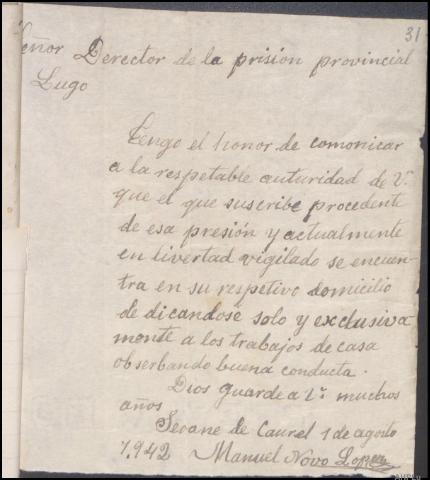 31
Señor Derector de la prision provincial
Lugo
Tengo el honor de comonicar
a la respetable auturidad de V.
que el que suscribe procedente
de esa presión y actualmente
en livertad vigilado se encuen-
tra en su respetivo domicilio
de dicandose solo y exclusiva
monte a los trabajos de casa
obserbando buena conducta.
Dios guarde a V. muchos
años
Seoane de Caurel 1 de agosto
1.942 Manuel Novo Lopez